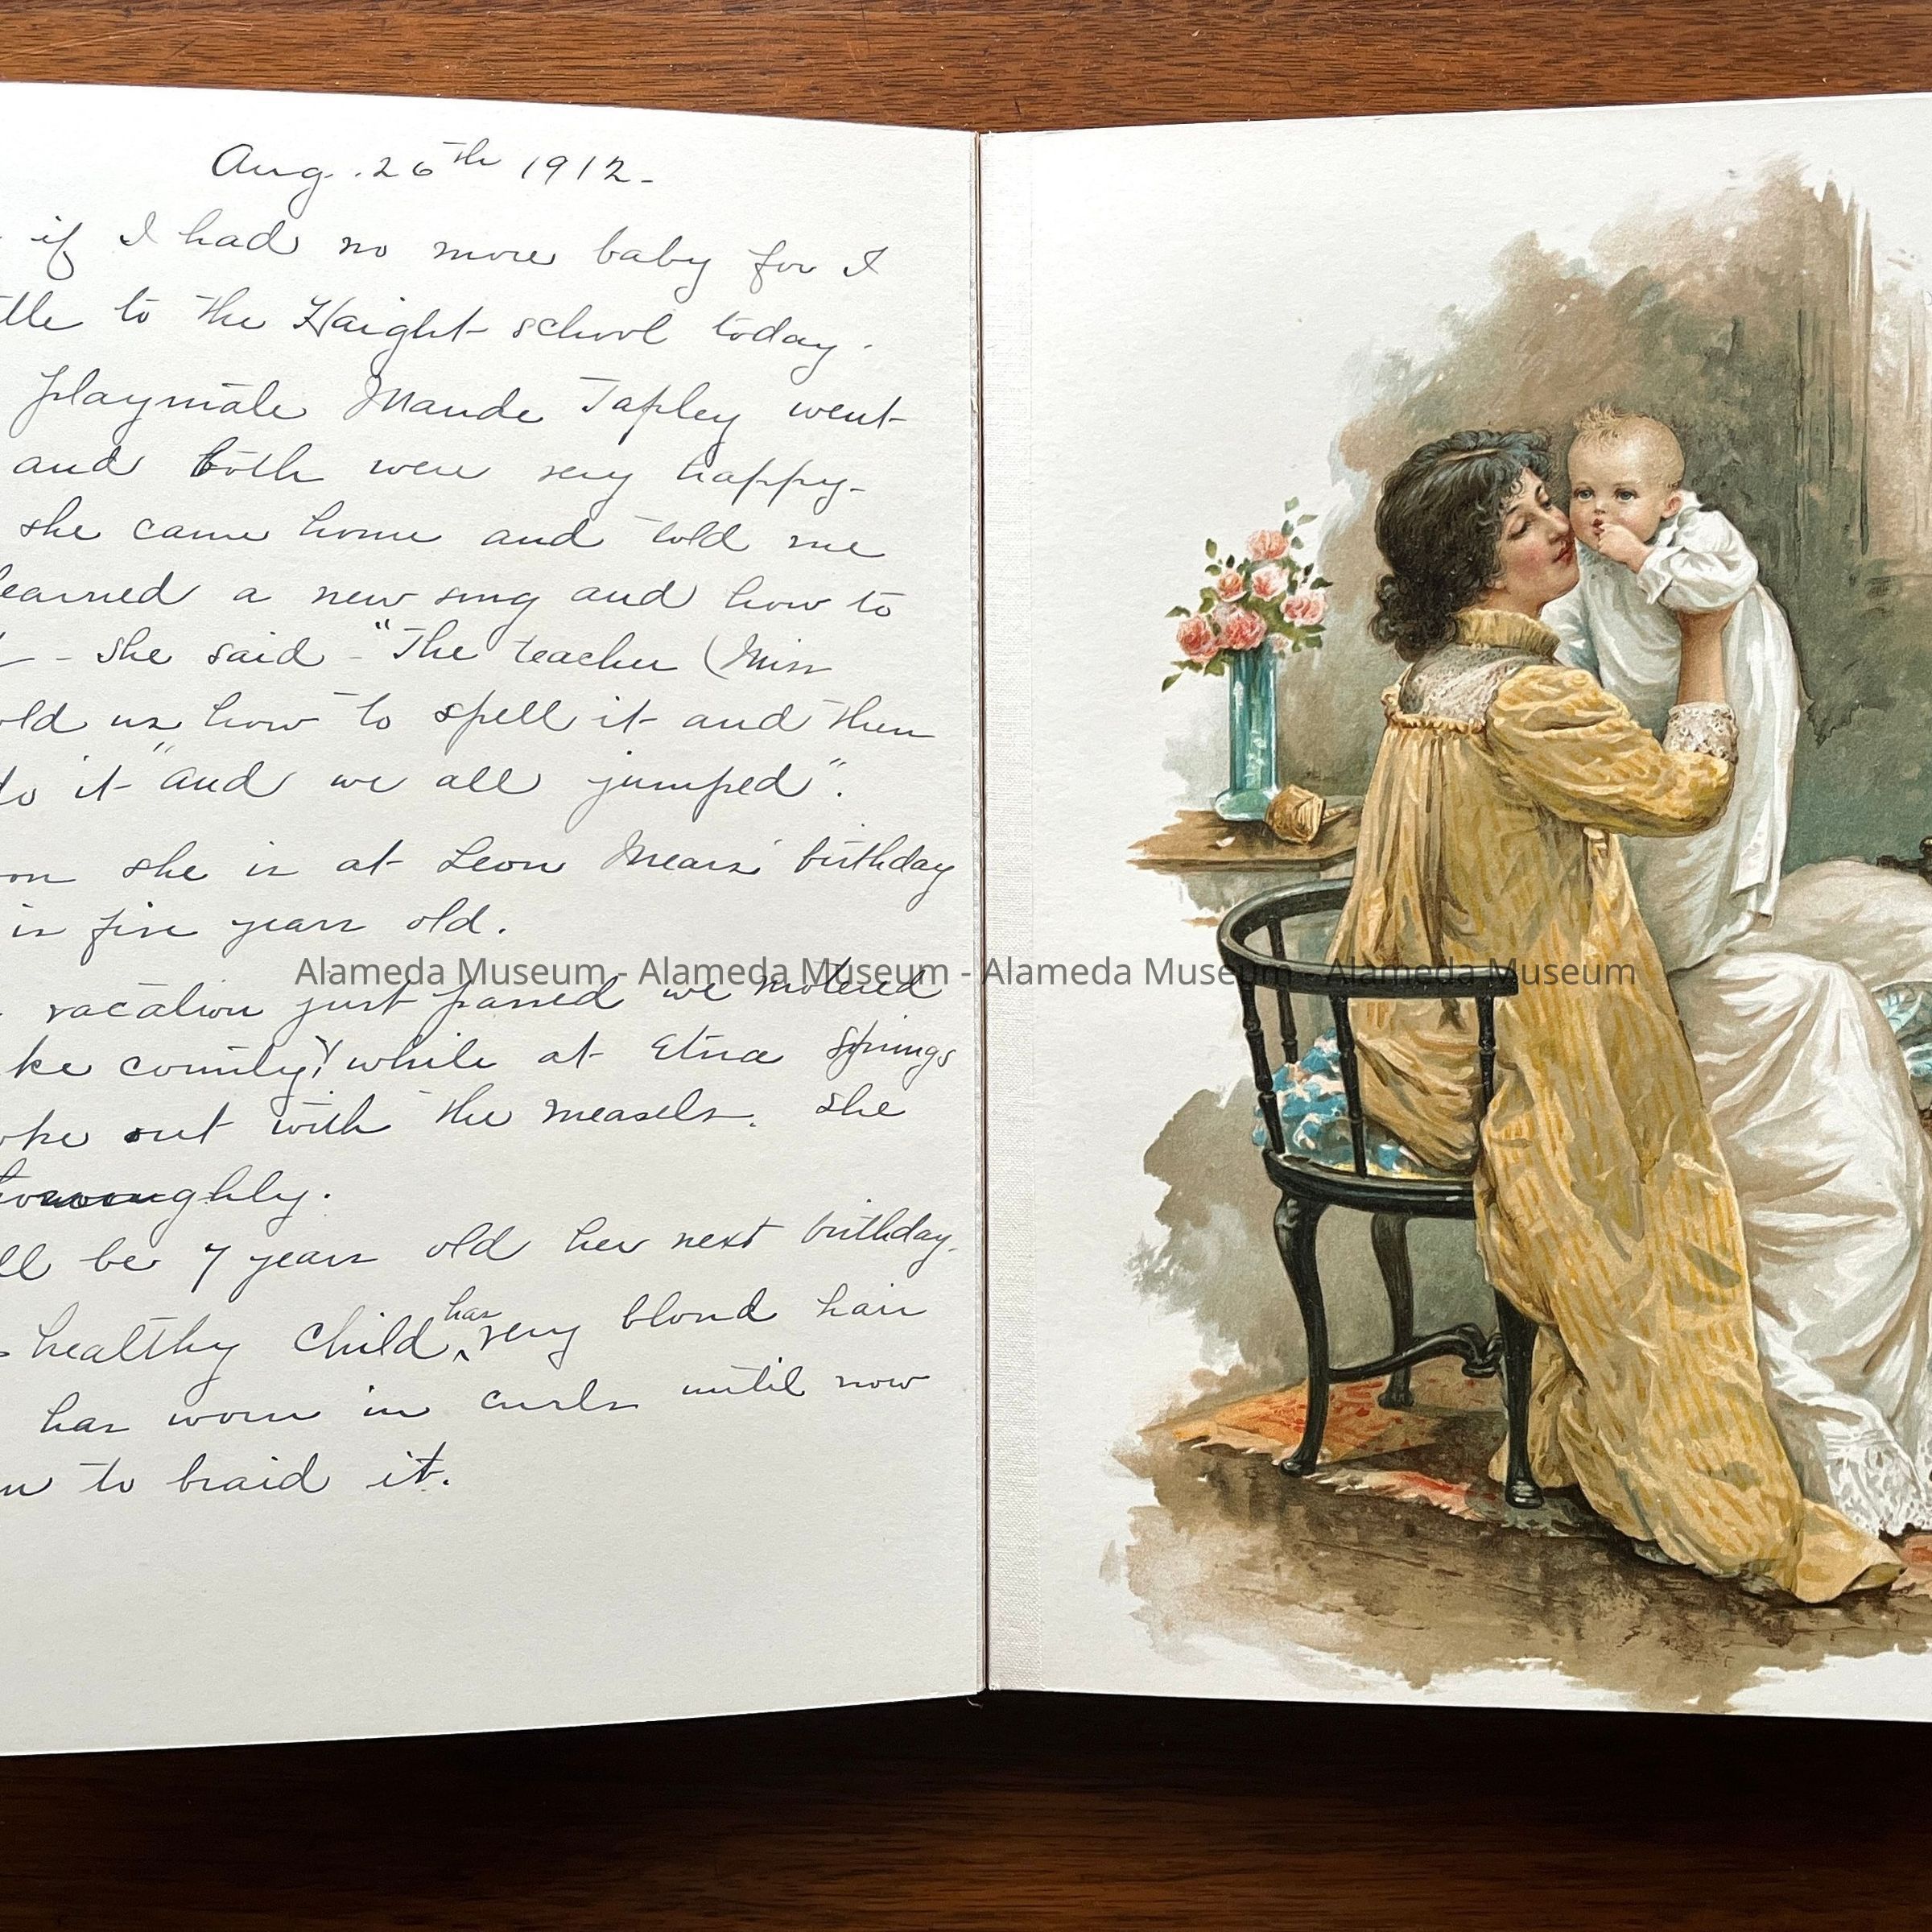 Aug. 26th 1912-
if I had no more baby for I
ttle to the Haight school today.
playmate Maude Tapley went
and both were very happy-
she came home and told me
learned a new song and how to
- She said - "The teacher (Miss
old us how to spell it and then
do it" and we all jumped".
on she is at Leon Mears' birthday
is five years old.
Alameda Museum - Alameda Museum - Alameda Museum - Alameda Museum
vacation just passed we motored
ke county, while at Etna Springs
oke out with the measels. She
oughly.
ll be 7 years old her next birthday.
healthy child, has very blond hair
has worn in curls until now
n to braid it.